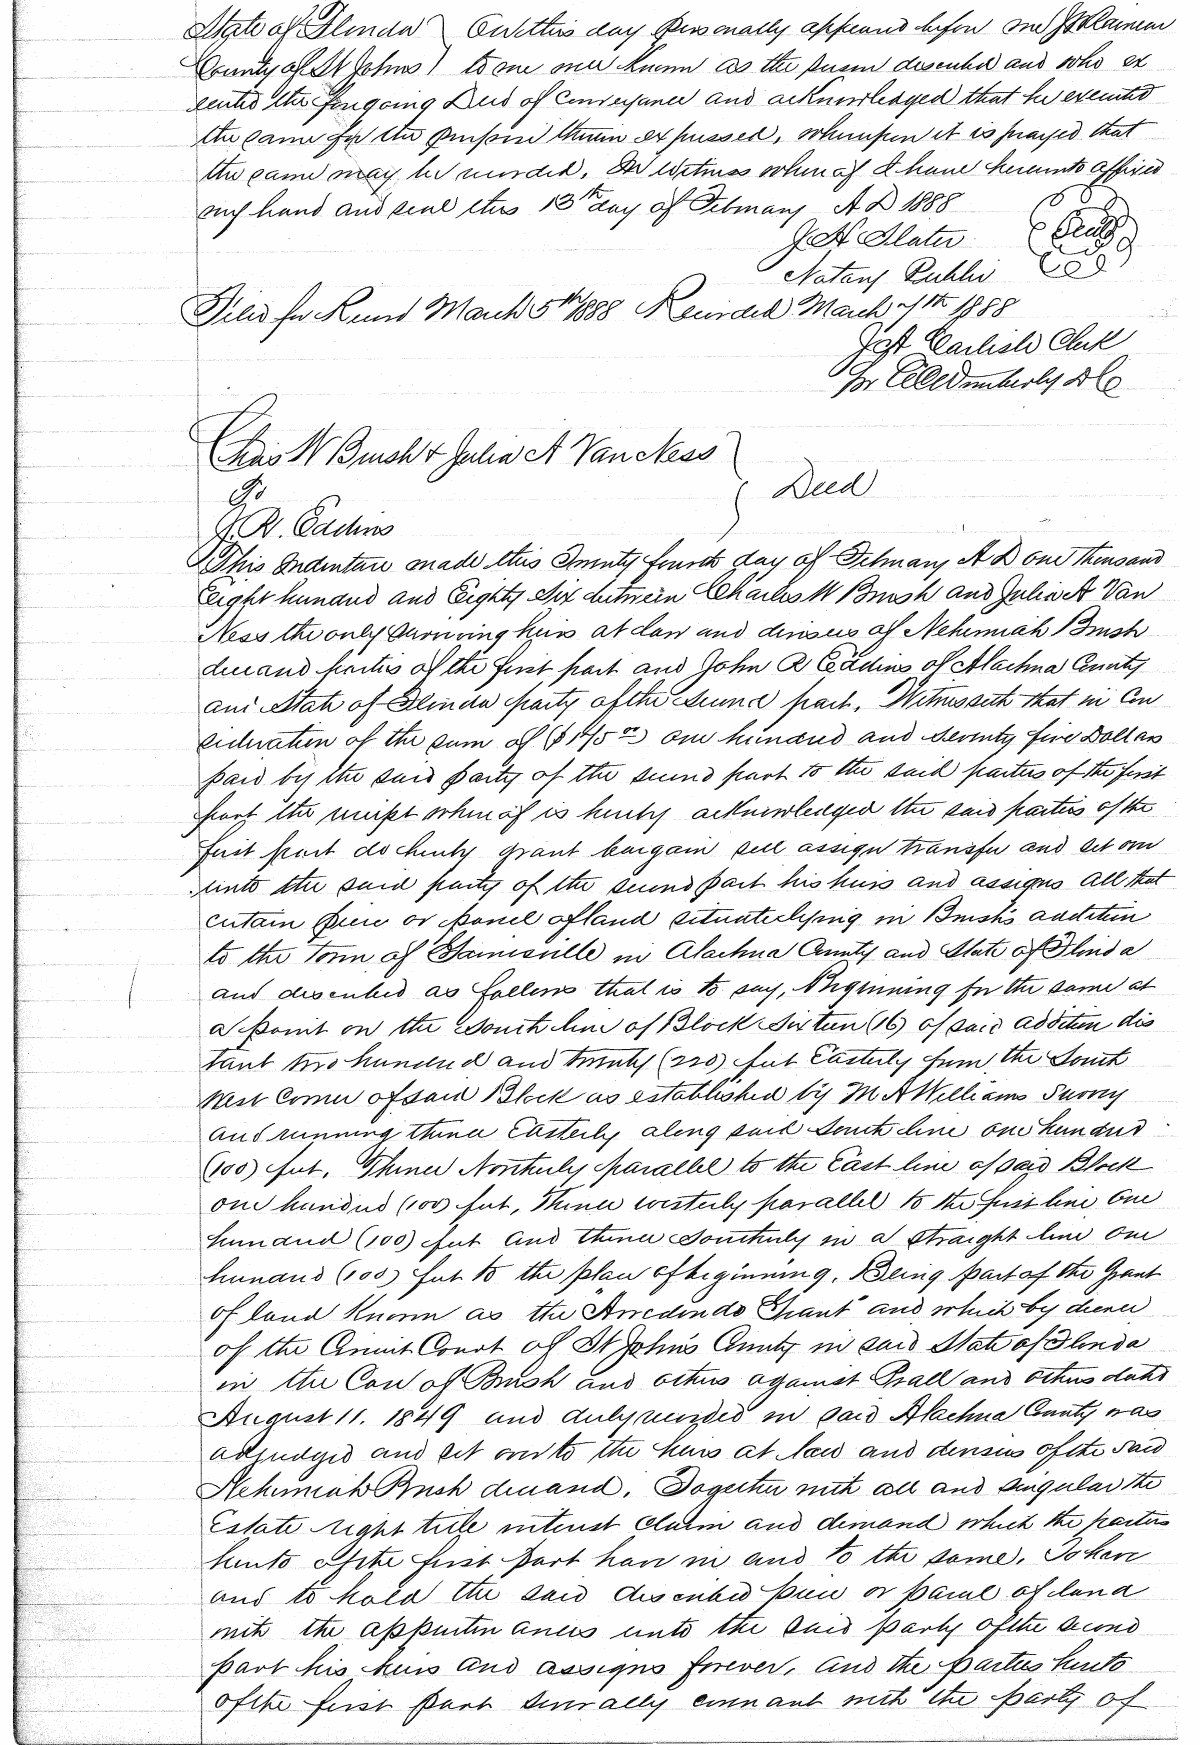 State of Florida } On this day personally appeared before me
County of St Johns } to me well known as the person described and who ex
ecuted the foregoing Deed of Conveyance and acknowledged that he executed
the same for the purpose therein expressed, whereupon it is prayed that
the same may be recorded. In Witness whereof I have hereunto affixed
my hand and seal this 13th day of February A D 1888
J. H. Slater (Seal)
Notary Public
Filed for Record March 5th 1888 Recorded March 7th 1888
Carlisle Clerk
Wimberly D C
Chas W Brush & Julia A Van Ness }
To } Deed
J. R. Eddins
This Indenture made this Twenty fourth day of February A D one thousand
Eight hundred and Eighty Six between Charles W Brush and Julia A Van
Ness the only surviving heirs at law and devisees of Nehemiah Brush
deceased parties of the first part and John R Eddins of Alachua County
and State of Florida party of the second part. Witnesseth that in Con
sideration of the sum of ($175 00) one hundred and seventy five Dollars
paid by the said party of the second part to the said parties of the first
part the receipt whereof is hereby acknowledged the said parties of the
first part do hereby grant bargain sell assign transfer and set over
unto the said party of the second part his heirs and assigns all that
certain piece or parcel of land situate lying in Brush's addition
to the Town of Gainesville in Alachua County and State of Florida
and described as follows that is to say, Beginning for the same at
a point on the South line of Block Sixteen (16) of said addition dis
tant two hundred and twenty (220) feet Easterly from the South
West Corner of said Block as established by M A Williams Survey
and running thence Easterly along said South line one hundred
(100) feet, Thence Northerly parallel to the East line of said Block
one hundred (100) feet, Thence westerly parallel to the first line One
hundred (100) feet and thence Southerly in a straight line one
hundred (100) feet to the place of beginning. Being part of the Grant
of land Known as the "Arredondo Grant" and which by decree
of the Circuit Court of St John's County in said State of Florida
in the Case of Brush and others against Prall and others dated
August 11. 1849 and duly recorded in said Alachua County was
adjudged and set over to the heirs at law and devisees of the said
Nehemiah Brush deceased. Together with all and singular the
Estate right title interest claim and demand which the parties
hereto of the first part have in and to the same. To have
and to hold the said described piece or parcel of land
with the appurtenances unto the said party of the second
part his heirs and assigns forever. And the parties hereto
of the first part severally covenant with the party of